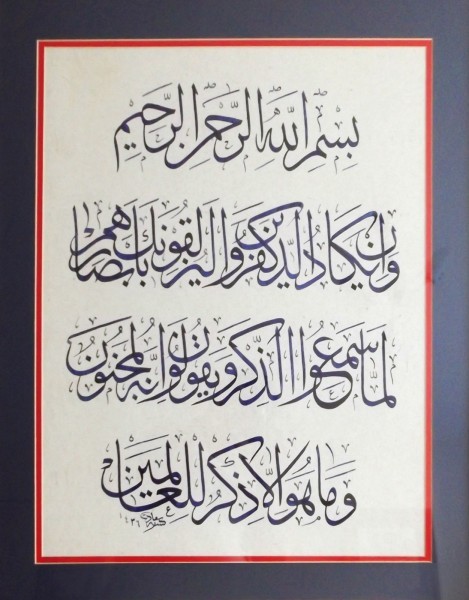 بِسْمِ اللَّهِ الرَّحْمَٰنِ الرَّحِيمِ
وَإِن يَكَادُ الَّذِينَ كَفَرُوا لَيُزْلِقُونَكَ بِأَبْصَارِهِمْ
لَمَّا سَمِعُوا الذِّكْرَ وَيَقُولُونَ إِنَّهُ لَمَجْنُونٌ
وَمَا هُوَ إِلَّا ذِكْرٌ لِّلْعَالَمِينَ
١٤٣٦